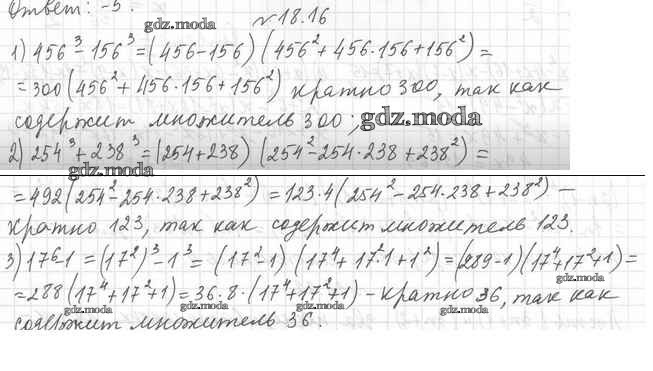 Ответ: -5.
№18.16
gdz.moda
1) 456³ - 156³ = (456 - 156) (456² + 456·156 + 156²) =
= 300 (456² + 456·156 + 156²) кратно 300, так как
содержит множитель 300; gdz.moda
2) 254³ + 238³ = (254 + 238) (254² - 254·238 + 238²) =
gdz.moda
= 492 (254² - 254·238 + 238²) = 123·4 (254² - 254·238 + 238²) —
кратно 123, так как содержит множитель 123.
3) 17⁶ - 1 = (17²)³ - 1³ = (17² - 1) (17⁴ + 17²·1 + 1²) = (289 - 1)(17⁴ + 17² + 1) =
gdz.moda
= 288 (17⁴ + 17² + 1) = 36·8·(17⁴ + 17² + 1) - кратно 36, так как
gdz.moda gdz.moda gdz.moda gdz.moda
содержит множитель 36.